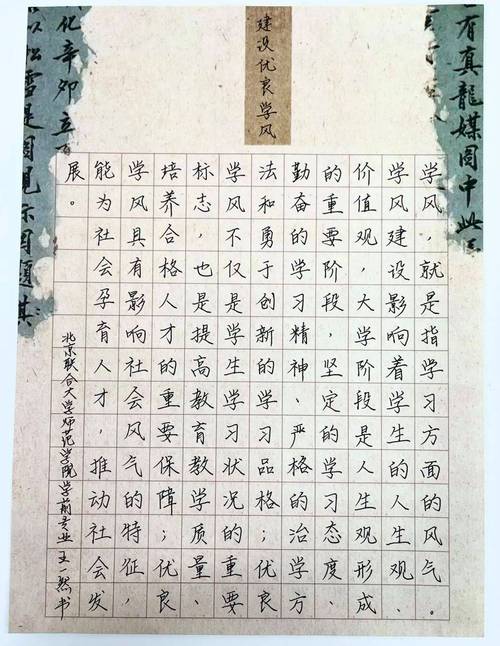 建设优良学风
学风，就是指学习方面的风气。
学风建设影响着学生的人生观、
价值观，大学阶段是人生观形成
的重要阶段，坚定的学习态度、
勤奋的学习精神、严格的治学方
法和勇于创新的学习品格；优良
学风不仅是学生学习状况的重要
标志，也是提高教育教学质量、
培养合格人才的重要保障；优良
学风具有影响社会风气的特征，
能为社会孕育人才，推动社会发
展。
北京联合大学师范学院学前专业 王一然书
有真龍媒图中此
化辛卯立
以松雪是图見示因題其